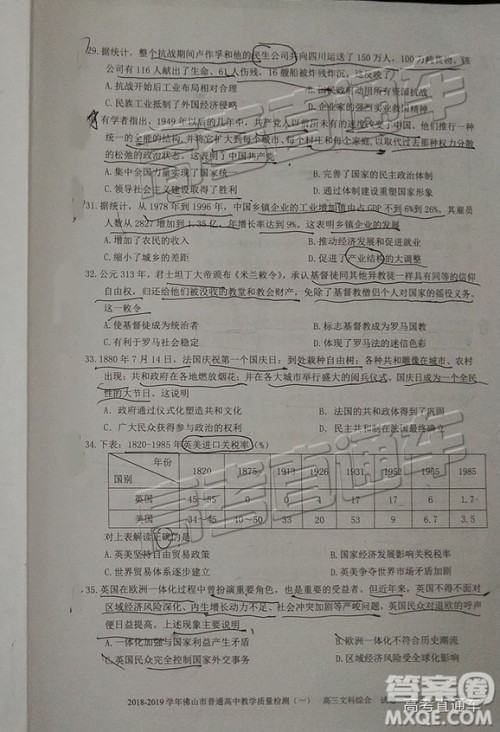 29.据统计，整个抗战期间卢作孚和他的民生公司共向四川运送了150万人，100万吨货物，该
公司有116人献出了生命、61人伤残，16艘船被炸残炸沉，这反映了
A.抗战开始后工业布局相对合理 B.国民政府动用所有资源抗战
C.民族工业抵制了外国经济侵略 D.企业家的强烈救亡精神
有学者指出，1949年以后的几年中，共产党人以前所未有的速度改变了中国，他们推行统
一的全能的结构，并将它扩大到每个城市、每个村庄和每个家庭，以取代过去那种权力分散
的松弛的政治状态。这表明了中国共产党
A.集中全国力量实现了国家 B.完善了国家的政治制度
C.领导社会主义建设取得了胜利 D.通过体制建设重塑国家形象
31.据统计，从1978年到1996年，中国乡镇企业的工业增加值由占GDP不到6%到26%，其雇员
人数从2827增加到1.35亿，年增长率达到9%。这表明乡镇企业的发展
A.增加了农民的收入 B.推动经济发展与改革
C.增加了社会就业 D.促进了产业结构的大调整
32.公元313年，君士坦丁大帝颁布《米兰敕令》，承认基督徒同其他异教徒一样具有同等的信仰
自由权，归还给他们被没收的教堂和教会财产，免除了基督教僧侣个人对国家的徭役义务。
这一敕令
A.使基督徒成为统治者 B.标志基督教成为罗马国教
C.有利于罗马社会稳定 D.体现了罗马法的迷信色彩
33.1880年7月14日，法国庆祝第一个国庆日：到处栽种自由树；各种共和雕像在城市、农村
出现；共和政府在各地燃放烟花；并在各大城市举行盛大的阅兵仪式，国庆日成为一个全民
性的大节日，这说明
A.政府通过仪式化塑造共和文化 B.法国的共和政体得到了巩固
C.广大民众获得参与政治的权利 D.法国人的民主意识深入人心
34.下表：1820-1985年英美进口关税率(%)
年份 国别 1820 1875 1913 1926 1931 1952 1955 1985
英国 45—55 0 0 4 17 17 6 1.7
美国 34—45 40—50 33 20 53 9 6.7 3.5
对上表解读正确的是
A.英美坚持自由贸易政策 B.国家经济发展影响关税政策
C.世界贸易体系逐步建立 D.英美争夺世界市场矛盾加剧
35.英国在欧洲一体化过程中曾扮演重要角色，也是重要的受益者。但近年来，英国不得不面对
区域经济风险深化、内生增长动力不足、社会冲突加剧等严峻问题，英国民众对退欧的呼声
便日益提高。上述现象主要说明
A.一体化加强与国家利益产生矛盾 B.欧洲一体化不符合历史规律
C.英国民众完全控制国家外交事务 D.
2018-2019学年佛山市普通高中教学质量检测（一） 高三文科综合 试
高考直通车
高考直通车
高考直通车
答案圈
高考直通车